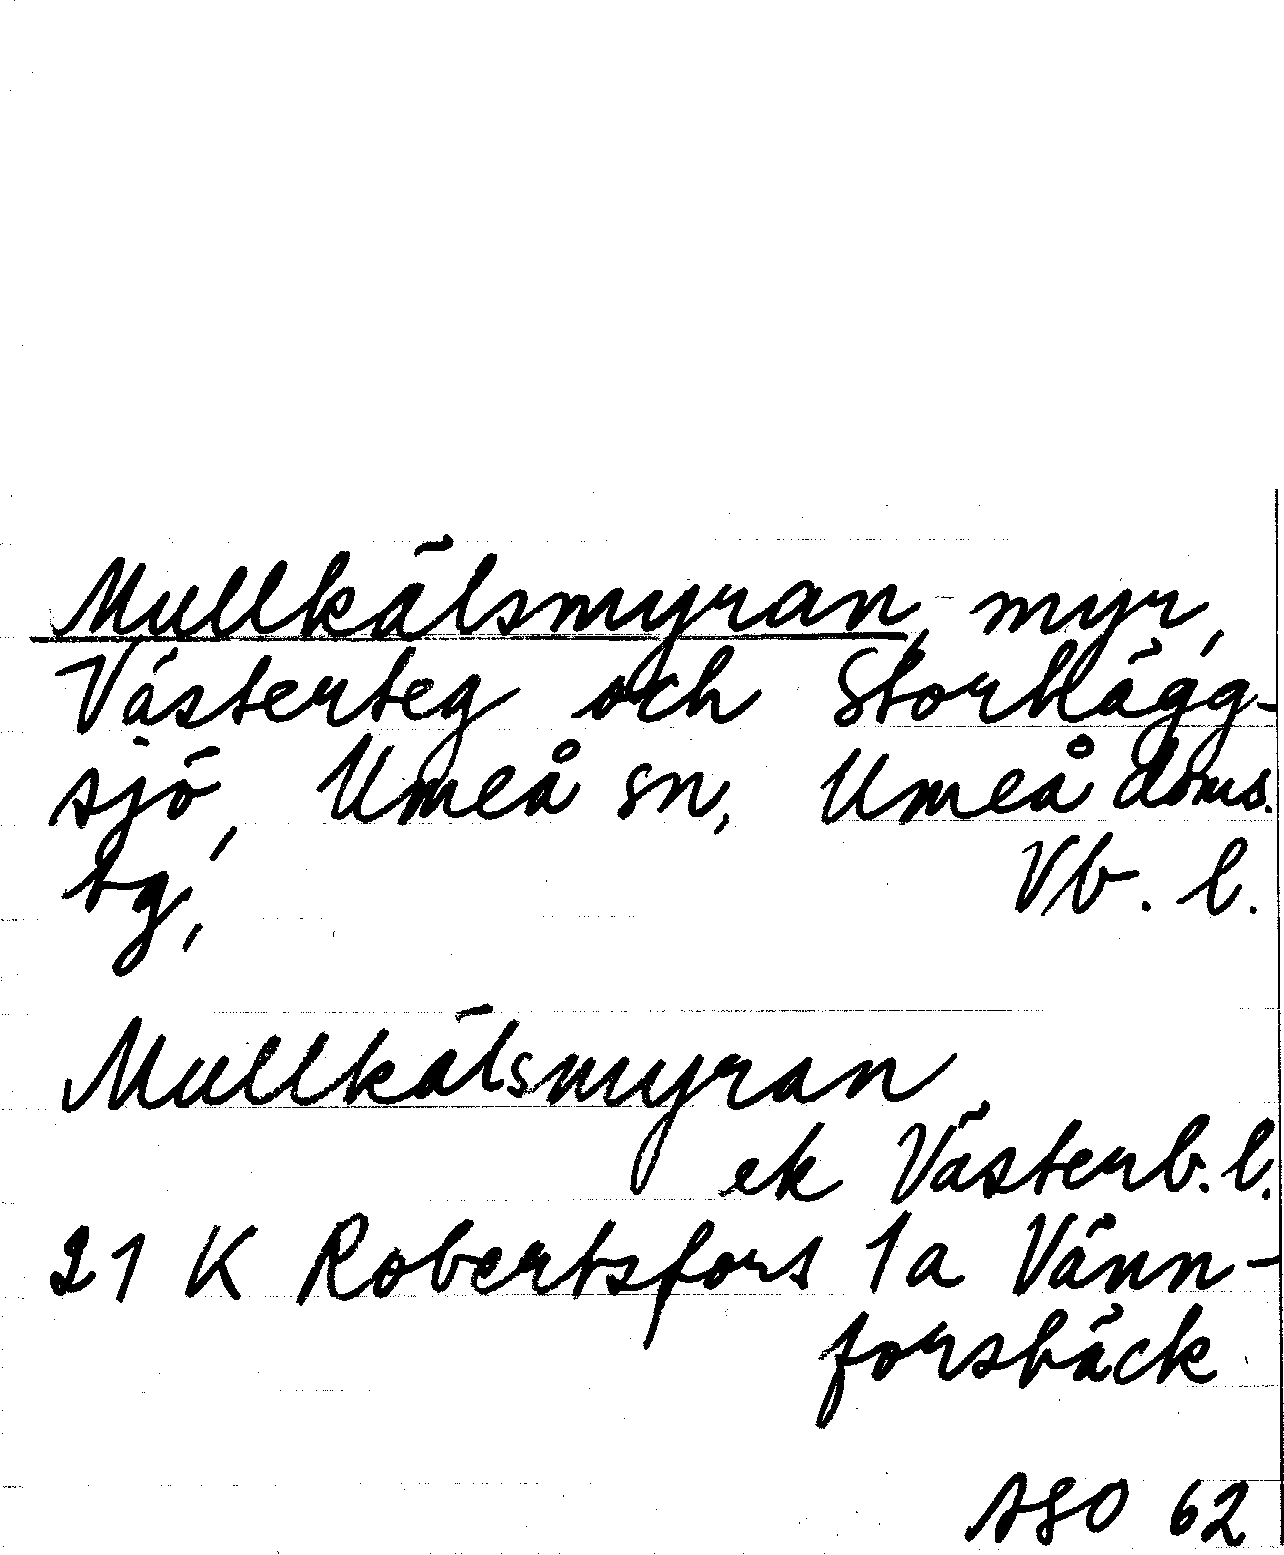 Mullkälsmyran, myr,
Västerteg och Storhägg-
sjö, Umeå sn, Umeå doms.
tg,                Vb. l.
Mullkälsmyran
ek Västerb. l.
21 K Robertsfors 1a Vänn-
forsbäck
ASO 62